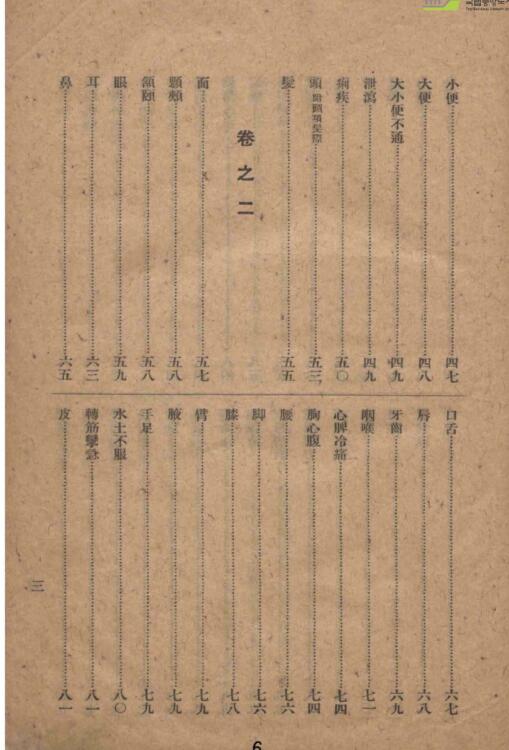 小便……四七
大便……四八
大小便不通……四九
泄瀉……四九
痢疾……五〇
頭……五三
髮……五五
卷之二
面……五七
頤頰……五八
頷頤……五八
眼……五九
耳……六三
鼻……六五
口舌……六七
唇……六八
牙齒……六九
咽喉……七一
心脾冷痛……七四
胸心腹……七四
腰……七六
脚……七六
膝……七八
臂……七九
腋……七九
手足……七九
水土不服……八〇
轉筋攣急……八一
皮……八一
三
6